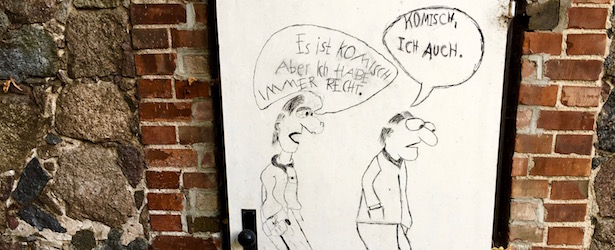 Es ist KOMISCH
Aber Ich HABE
IMMER RECHT.
KOMISCH,
ICH AUCH.